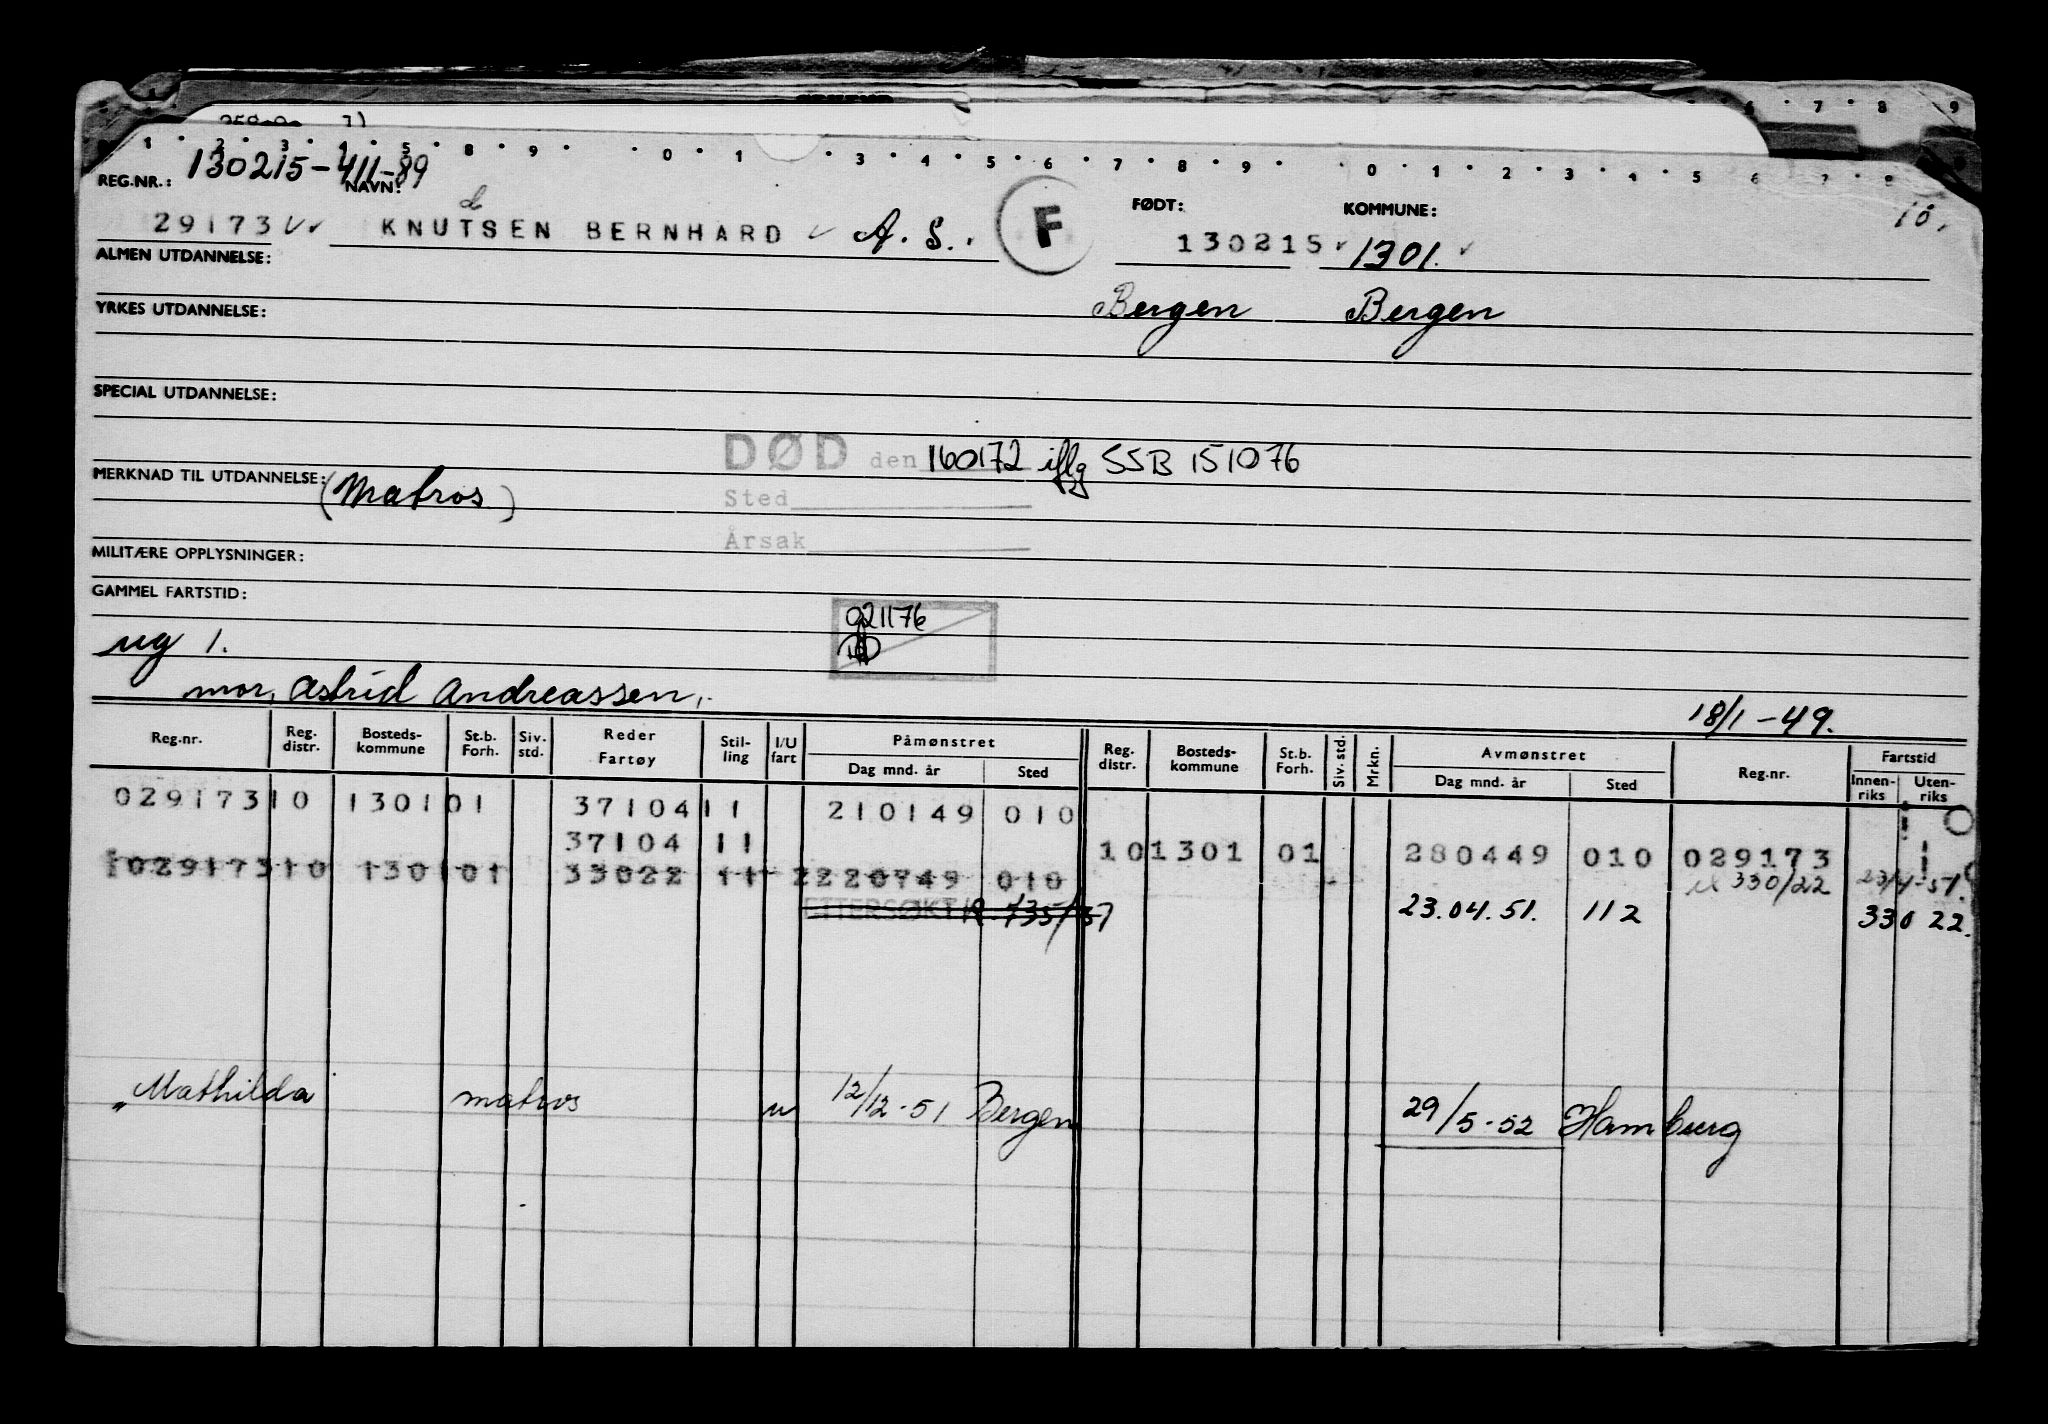 130215-411-89
REG.NR.: NAVN: FØDT: KOMMUNE: 10.
d
29173 KNUTSEN BERNHARD A. S. F 130215 1301.
ALMEN UTDANNELSE:
YRKES UTDANNELSE: Bergen Bergen
SPECIAL UTDANNELSE:
DØD den 160172 iflg SSB 151076
MERKNAD TIL UTDANNELSE: (Matros)
Sted
Årsak
MILITÆRE OPPLYSNINGER:
GAMMEL FARTSTID:
021176
ug 1.
mor, Astrid Andreassen, 18/1-49.
Reg.nr. Reg. distr. Bosteds-kommune St.b. Forh. Siv. std. Reder Fartøy Stil-ling I/U fart Påmønstret Dag mnd. år Sted Reg. distr. Bosteds-kommune St.b. Forh. Siv. std. Mrkn. Avmønstret Dag mnd. år Sted Reg.nr. Fartstid Innen-riks Uten-riks
029173 10 1301 01 37104 11 210149 010
37104 11 10 1301 01 280449 010 029173
029173 10 1301 01 33022 11 2 220749 010 330/22 23/4-51.
ETTERSØKT 735/37 23.04.51. 112 330 22.
"Mathilda matros u 12/12-51 Bergen 29/5-52 Hamburg